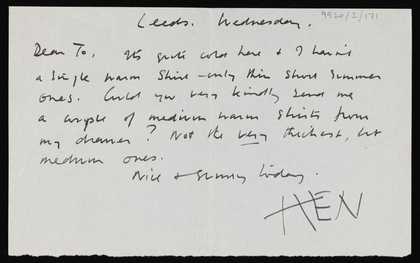 Leeds. Wednesday.
9520/2/171
Dear To. Its quite cold here & I haven't
a single warm shirt - only thin short summer
ones. Could you very kindly send me
a couple of medium warm shirts from
my drawer? Not the very thickest, but
medium ones.
Nice & sunny today.
HEN